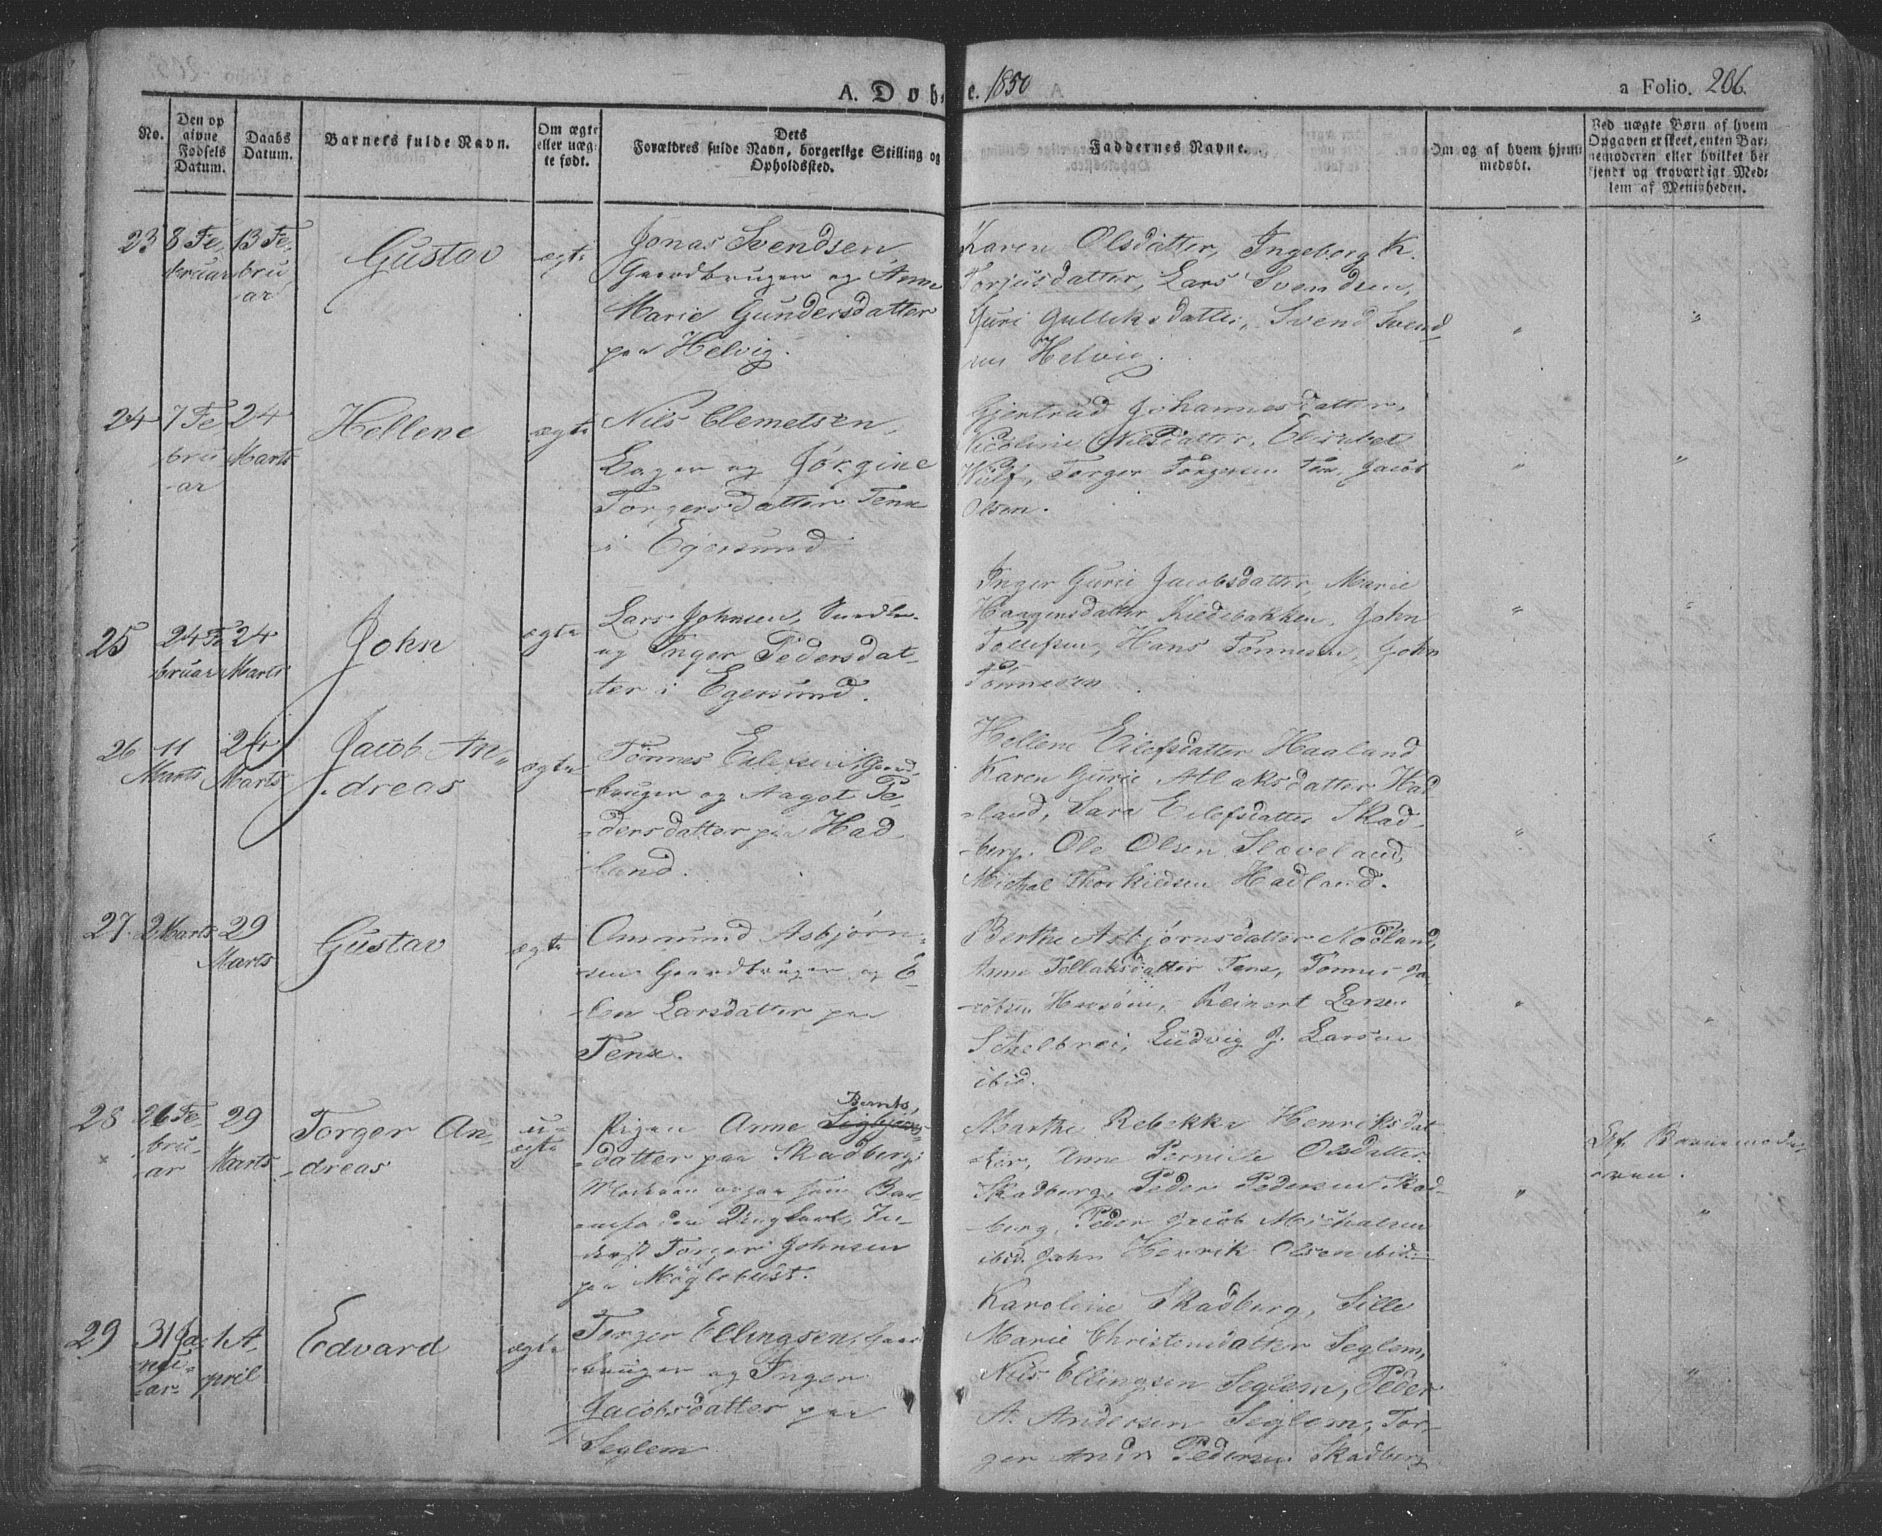 A. Døbte. 1850
a Folio. 206.
No.
Den opgivne Fødsels Datum.
Daabs Datum.
Barnets fulde Navn.
Om ægte eller uægte født.
Dets Forældres fulde Navn, borgerlige Stilling og Opholdssted.
Faddernes Navne.
Om og af hvem hjemmedøbt.
Ved uægte Børn af hvem Opgaven er skeet, enten Barnemoderen eller hvilket bekjendt og troværdigt Medlem af Menigheden.
23
8 Fe
bruar
13 Fe
bru
ar
Gustav
ægte
Jonas Svendsen,
Gaardbruger og Anne
Marie Gundersdatter
paa Helvig.
Karen Olsdatter, Ingeborg K.
Torjusdatter, Lars Svendsen,
Guri Gulliksdatter, Svend Svend
sen Helvig.
24
7 Fe
bru
ar
24
Marts
Hellene
ægte
Nils Clemetsen,
og Jørgine
Torgersdatter Tenx
i Egersund
Gjertrud Johannesdatter,
Nicoline Nilsdatter, Elisabet
Torger Torgersen Jacob
Olsen.
25
24 Fe
bruar
24
Marts
John
ægte
Lars Johnsen,
og Inger Pedersdat
ter i Egersund.
Inger Gurie Jacobsdatter, Marie
Haagensdatter Kildebakken, John
Tollefsen, Hans Tønnesen, John
Tønnesen
26
11
Marts
24
Marts
Jacob An
dreas
ægte
Tønnes Eilefsen Gaard
bruger og Aagot Pe
dersdatter paa Had
land.
Hellene Eilefsdatter Haaland
Karen Gurie Atlaksdatter Had
land, Sara Eilefsdatter Skad
berg, Ole Olsen Sleveland,
Michal Thorkildsen Hadland.
27.
2 Marts
29
Marts
Gustav
ægte
Omund Asbjørn
sen Gaardbruger og E
len Larsdatter paa
Tenx.
Berthe Asbjørnsdatter Nodland,
Anne Tollaksdatter Tenx, Tønnes Ja
cobsen Reinert Larsen
Ludvig J. Larsen
ibid.
28
26 Fe
bru
ar
29
Marts
Torger An
dreas
u
ægte
Pigen Anne Bernts
datter paa Skadberg.
Moderen som Bar
nefader Ungkarl, In
derst Torger Johnsen
paa Møglebust.
Marthe Rebekke Henriksdat
ter, Anne Pernille Olsdatter
Skadberg, Peder Pedersen Skad
berg, Peder Jacob Michalsen
ibid. John Henrik Olsen ibid.
Af Barnemode
ren.
29
31 Ja
nu
ar
1 A
pril
Edvard
ægte
Torger Ellingsen, Gaard
bruger og Inger
Jacobsdatter paa
Seglem
Karoline Skadberg, Sille
Marie Christensdatter Seglem,
Nils Ellingsen Seglem, Peder
A. Andersen Seglem, Tor
ger Andr. Pedersen Skadberg